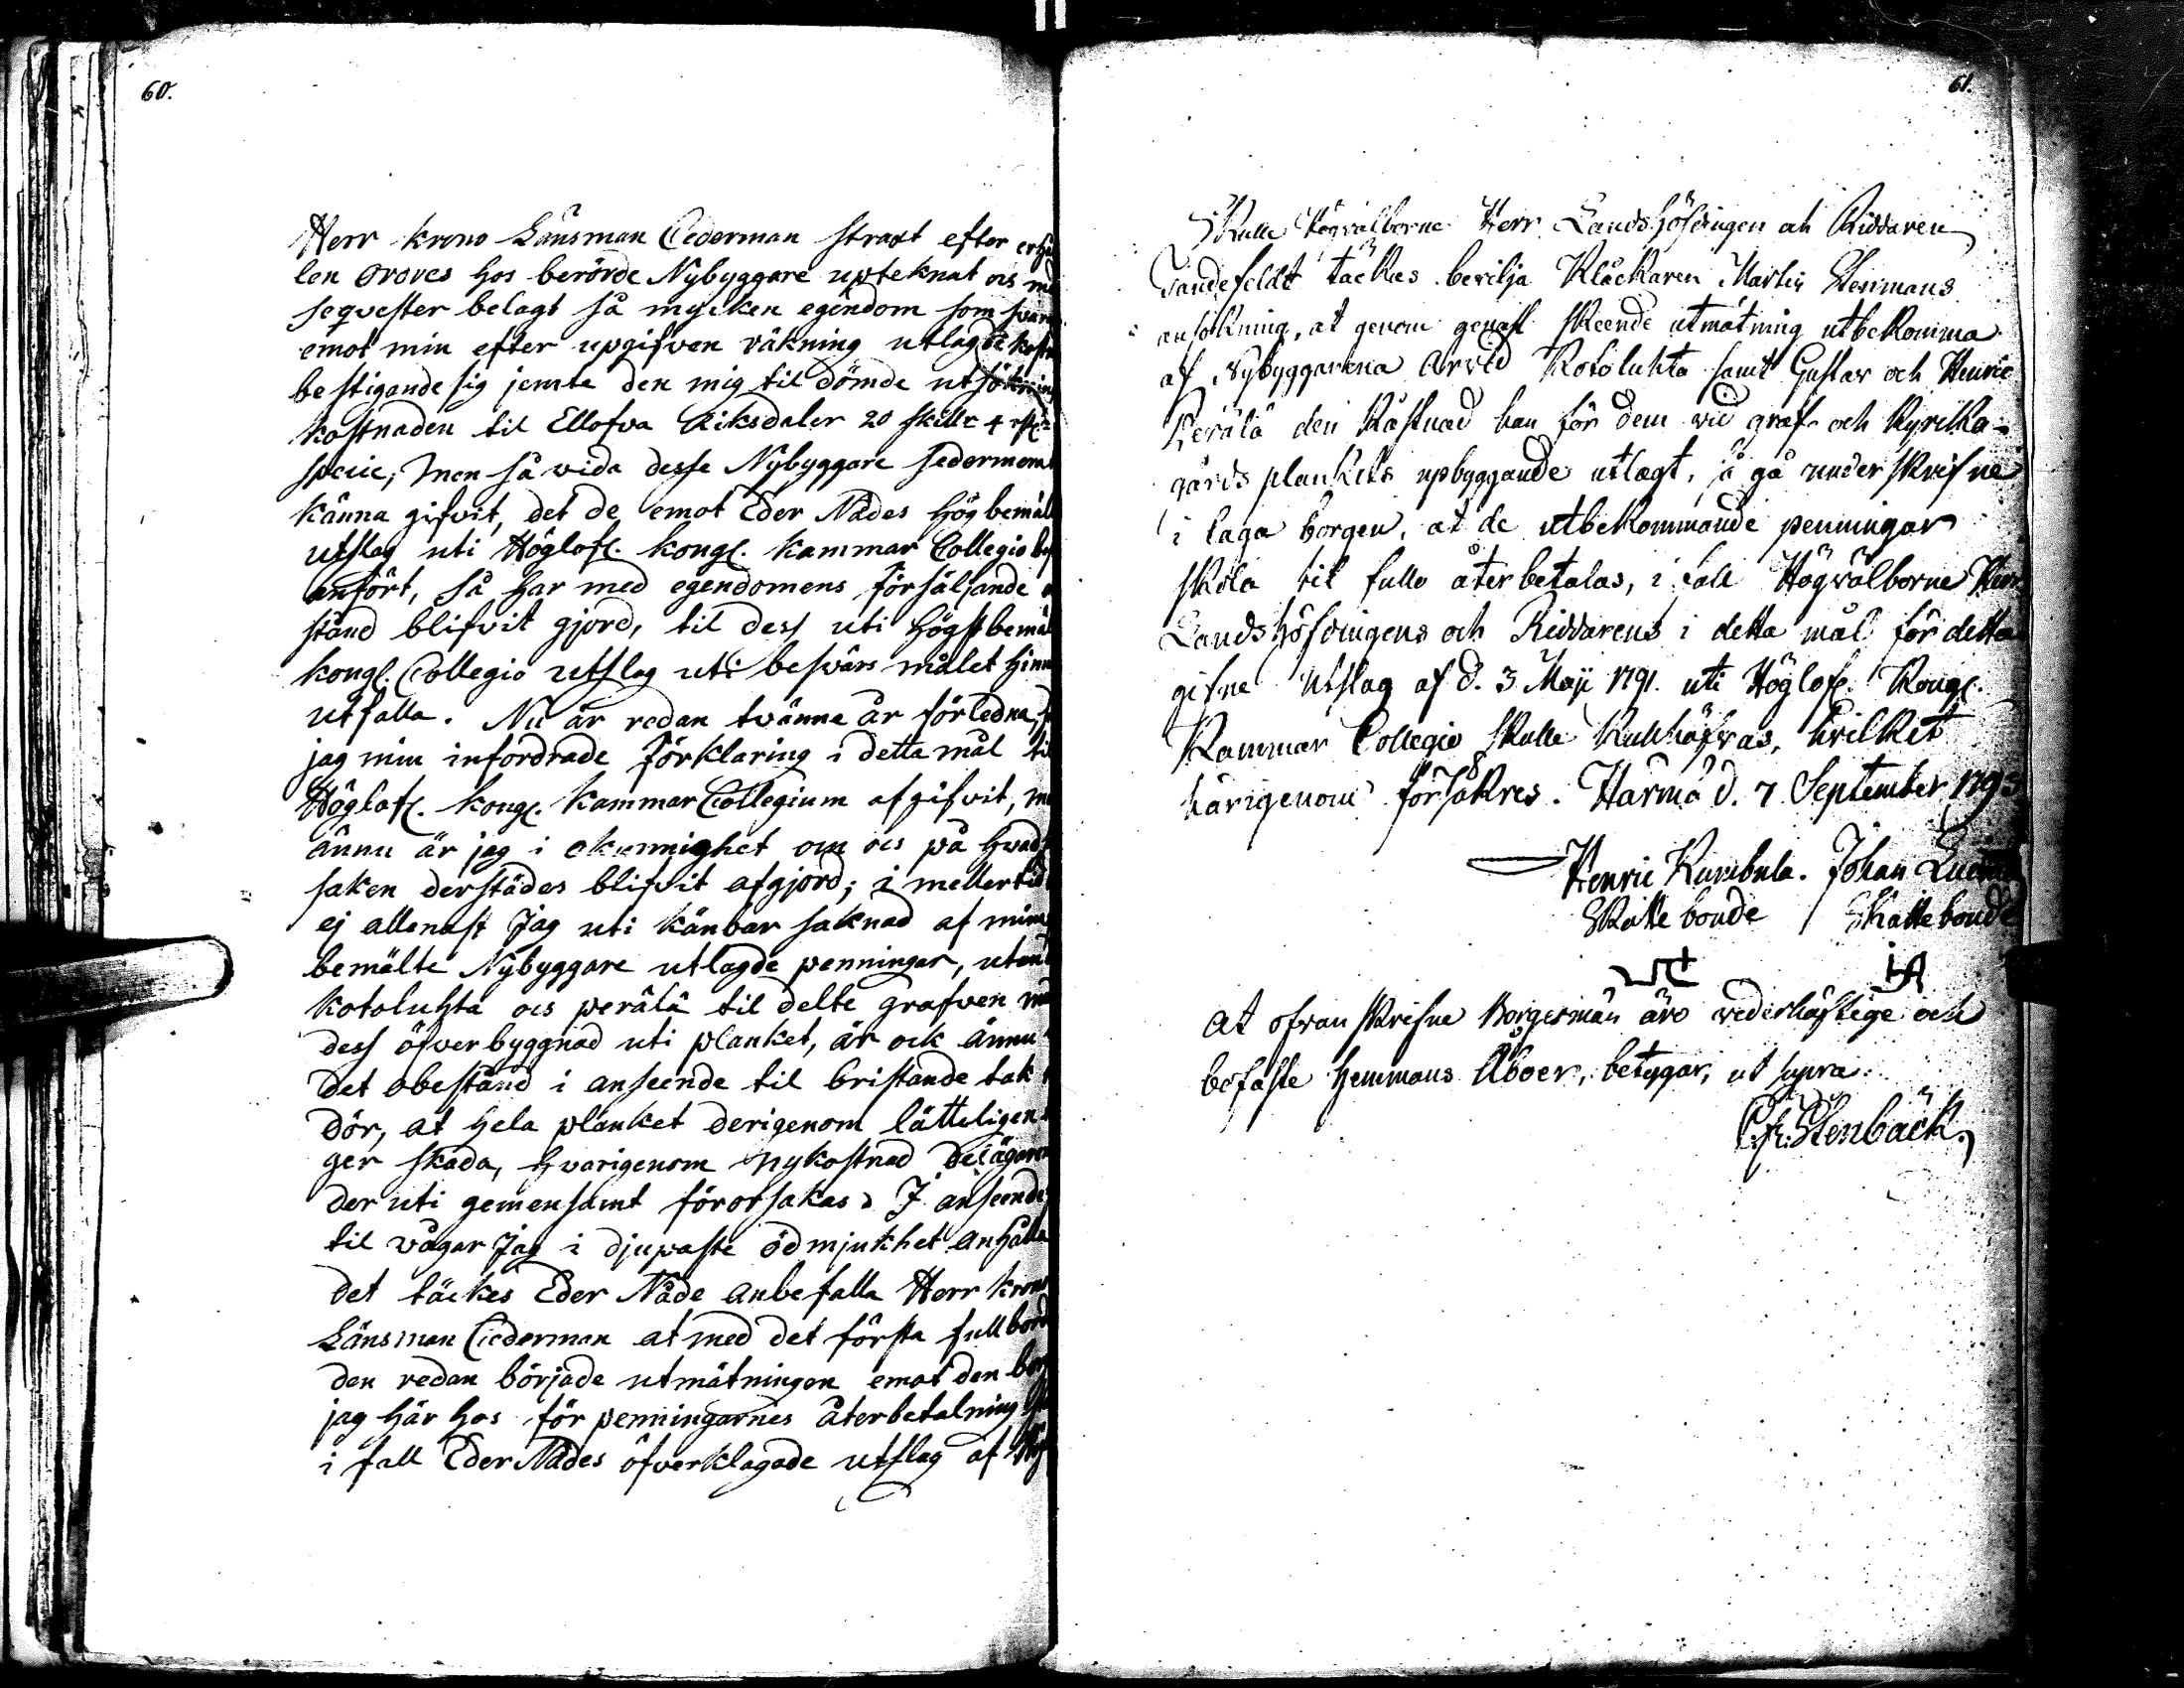 60.
Herr Krono Länsman Cederman straxt efter
len orders hos berörde Nybyggare upteknat ocs med
seqvester belagt så mycken egendom som svara
emot min efter upgifven räkning utlagde kostn
bestigande sig jemte den mig til dömde utsöknings
kostnaden til Ellofva Riksdaler 20 skillr 4 rst:
specie; Men så vida desse Nybyggare sedermera
känna gifvit, det de emot Eder Nådes Hög bemäl
utslag uti Höglofl. Kongl. Kammar Collegio bes
anfört, så har med egendomens försäljande
stånd blifvit gjord, til dess uti Högstbemäl
Kongl. Collegio utslag uti besvärs målet hinn
utfalla. Nu är redan tvänne år förledna, s
jag min infordrade Förklaring i detta mål til
Höglofl. Kongl. Kammar Collegium afgifvit, me
ännu är jag i okunnighet om ocs på hvad s
saken derstädes blifvit afgjord; i mellertid
ej allenast Jag uti känbar saknad af mina
bemälte Nybyggare utlagde penningar, utan
Kotoluhta ocs Perälä til delte grafven
dess öfverbyggnad uti planket, är ock ännu
det obestånd i anseende til bristande tak
dör, at hela planket derigenom lätteligen
ger skada, hvarigenom ny kostnad Delägaren
der uti gemensamt förorsakas. I anseende
til vågar Jag i djupaste ödmjukhet anhålla
det täckes Eder Nåde anbefalla Herr Krono
Länsman Cederman at med det första fullborda
den redan började utmätningen emot den bor
jag här hos för penningarnes återbetalning
i fall Eder Nådes öfverklagade utslag af
61.
Skulle Högvälborne Herr Landshöfdingen och Riddaren
täckes bevilja Klåckaren Martin Stenmans
ansökning, at genom genast skeende utmätning utbekomma
af Nybyggarena Arvid Kotoluhta samt Gustav och Henric
Perälä den kåstnad han för dem vid graf- och Kyrcko-
gårds plankets upbyggande utlagt, så gå underskrifne
i laga borgen, at de utbekommande penningar
skola til fullo återbetalas, i fall Högvälborne Herr
Landshöfdingens och Riddarens i detta mål för detta
gifne Utslag af d. 3 Maji 1791. uti Höglofl. Kongl.
Kammar Collegio skulle kullkäfvas, hvilket
härigenom försäkres. Härmä d. 7 September 1793
Henric Kuribula. Johan
Skatte bonde Skatte bonde
At ofvanskrifne Borgesmän äro vederhäftige och
bofaste Hemmans Åboer, betygar, ut supra.
C. Fr. Stenbäck.